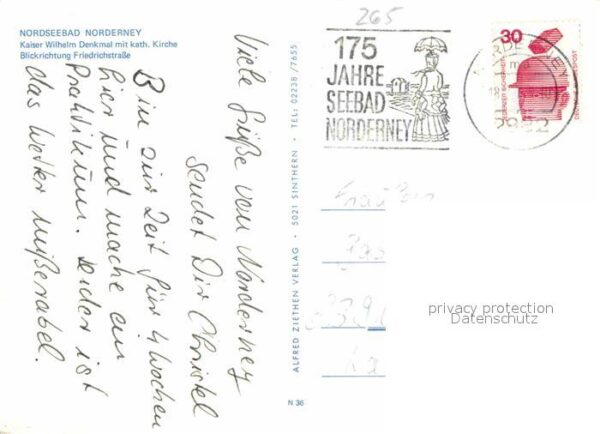 NORDSEEBAD NORDERNEY
Kaiser Wilhelm Denkmal mit kath. Kirche
Blickrichtung Friedrichstraße
265
175
JAHRE
SEEBAD
NORDERNEY
30
2982
DEUTSCHE BUNDESPOST
Bin zur Zeit für 4 Wochen
hier und mache ein
Praktikum. Leider ist
das Wetter mißerabel.
Viele Grüße von Norderney
sendet Dir Christel
ALFRED ZIETHEN VERLAG · 5021 SINTHERN · TEL. 02238/7655
N 36
Frau
privacy protection
Datenschutz